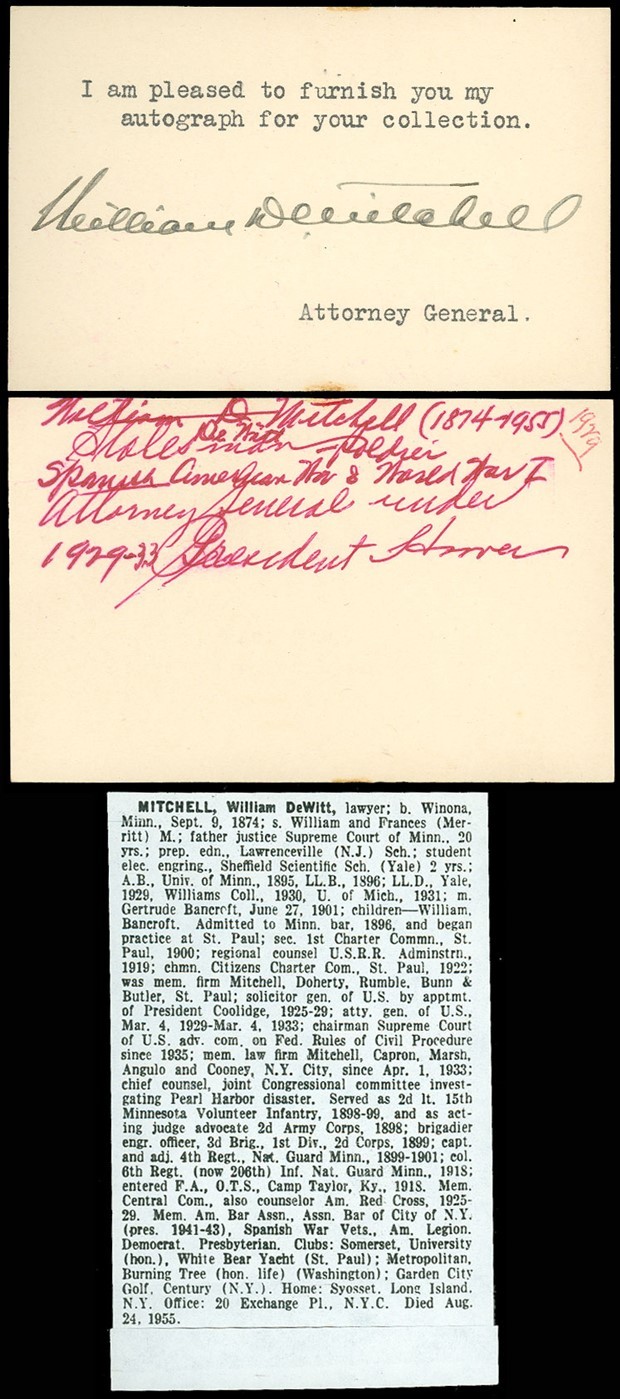 I am pleased to furnish you my
autograph for your collection.
William D Mitchell
Attorney General.
William D. Mitchell (1874-1955) 1929
De Witt
Statesman - soldier
Spanish American War & World War I
Attorney General under
1929-33 President Hoover
MITCHELL, William DeWitt, lawyer; b. Winona,
Minn., Sept. 9, 1874; s. William and Frances (Mer-
ritt) M.; father justice Supreme Court of Minn., 20
yrs.; prep. edn., Lawrenceville (N.J.) Sch.; student
elec. engring., Sheffield Scientific Sch. (Yale) 2 yrs.;
A.B., Univ. of Minn., 1895, LL.B., 1896; LL.D., Yale,
1929, Williams Coll., 1930, U. of Mich., 1931; m.
Gertrude Bancroft, June 27, 1901; children—William,
Bancroft. Admitted to Minn. bar, 1896, and began
practice at St. Paul; sec. 1st Charter Commn., St.
Paul, 1900; regional counsel U.S.R.R. Adminstrn.,
1919; chmn. Citizens Charter Com., St. Paul, 1922;
was mem. firm Mitchell, Doherty, Rumble, Bunn &
Butler, St. Paul; solicitor gen. of U.S. by apptmt.
of President Coolidge, 1925-29; atty. gen. of U.S.,
Mar. 4, 1929-Mar. 4, 1933; chairman Supreme Court
of U.S. adv. com. on Fed. Rules of Civil Procedure
since 1935; mem. law firm Mitchell, Capron, Marsh,
Angulo and Cooney, N.Y. City, since Apr. 1, 1933;
chief counsel, joint Congressional committee invest-
gating Pearl Harbor disaster. Served as 2d lt. 15th
Minnesota Volunteer Infantry, 1898-99, and as act-
ing judge advocate 2d Army Corps, 1898; brigadier
engr. officer, 3d Brig., 1st Div., 2d Corps, 1899; capt.
and adj. 4th Regt., Nat. Guard Minn., 1899-1901; col.
6th Regt. (now 206th) Inf. Nat. Guard Minn., 1918;
entered F.A., O.T.S., Camp Taylor, Ky., 1918. Mem.
Central Com., also counselor Am. Red Cross, 1925-
29. Mem. Am. Bar Assn., Assn. Bar of City of N.Y.
(pres. 1941-43), Spanish War Vets., Am. Legion.
Democrat. Presbyterian. Clubs: Somerset, University
(hon.), White Bear Yacht (St. Paul); Metropolitan,
Burning Tree (hon. life) (Washington); Garden City
Golf, Century (N.Y.). Home: Syosset, Long Island,
N.Y. Office: 20 Exchange Pl., N.Y.C. Died Aug.
24, 1955.